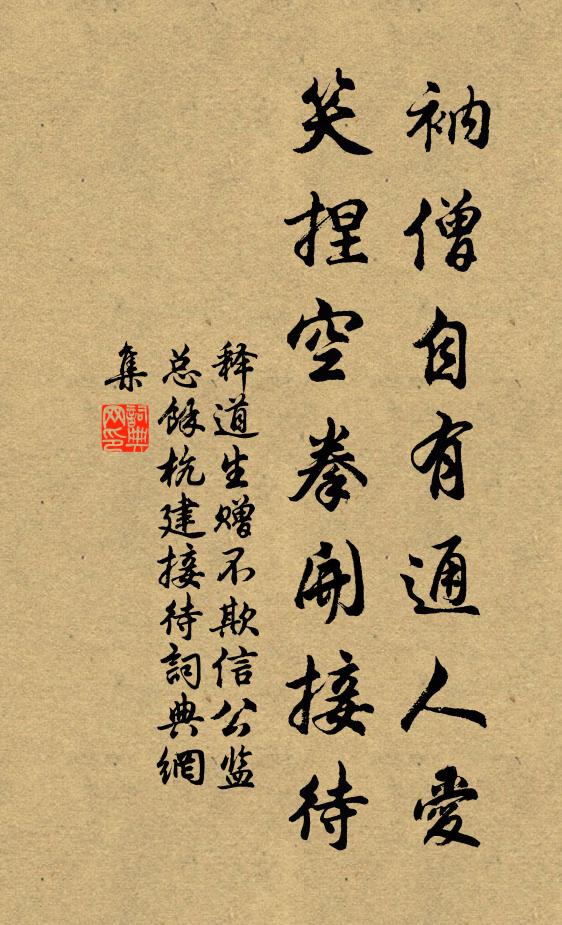 衲僧自有通人爱
笑捏空拳开接待
释道生赠不欺信公监
总馀杭建接待詞典網
集
詞典网印